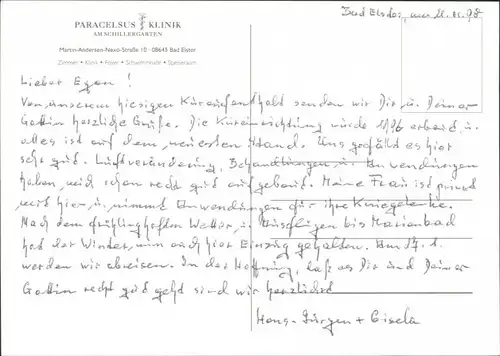 PARACELSUS KLINIK
AM SCHILLERGARTEN
Martin-Andersen-Nexö-Straße 10 · 08645 Bad Elster
Zimmer • Klinik • Foyer • Schwimmhalle • Speiseraum
Bad Elster, am 11.01.98
Lieber Egon!
Von unserem hiesigen Kuraufenthalt senden wir Dir u. Deiner
Gattin herzliche Grüße. Die Kureinrichtung wurde 1996 erbaut u.
alles ist auf dem neuersten Stand. Uns gefällt es hier
sehr gut. Luftveränderung, Behandlungen u. Anwendungen
haben, uns schon recht gut aufgebaut. Meine Frau ist privat
mit hier u. nimmt Anwendungen für ihre Kniegelenke.
Nach dem frühlinghaften Wetter u. Ausflügen bis Marienbad
hat der Winter nun auch hier Einzug gehalten. Am 17.1.
werden wir abreisen. In der Hoffnung, daß es Dir und Deiner
Gattin recht gut geht sind wir herzlichst
Hans-Jürgen + Gisela